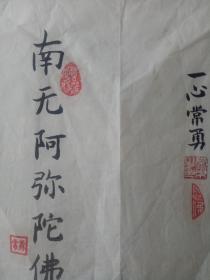 南无阿弥陀佛
一心常勇